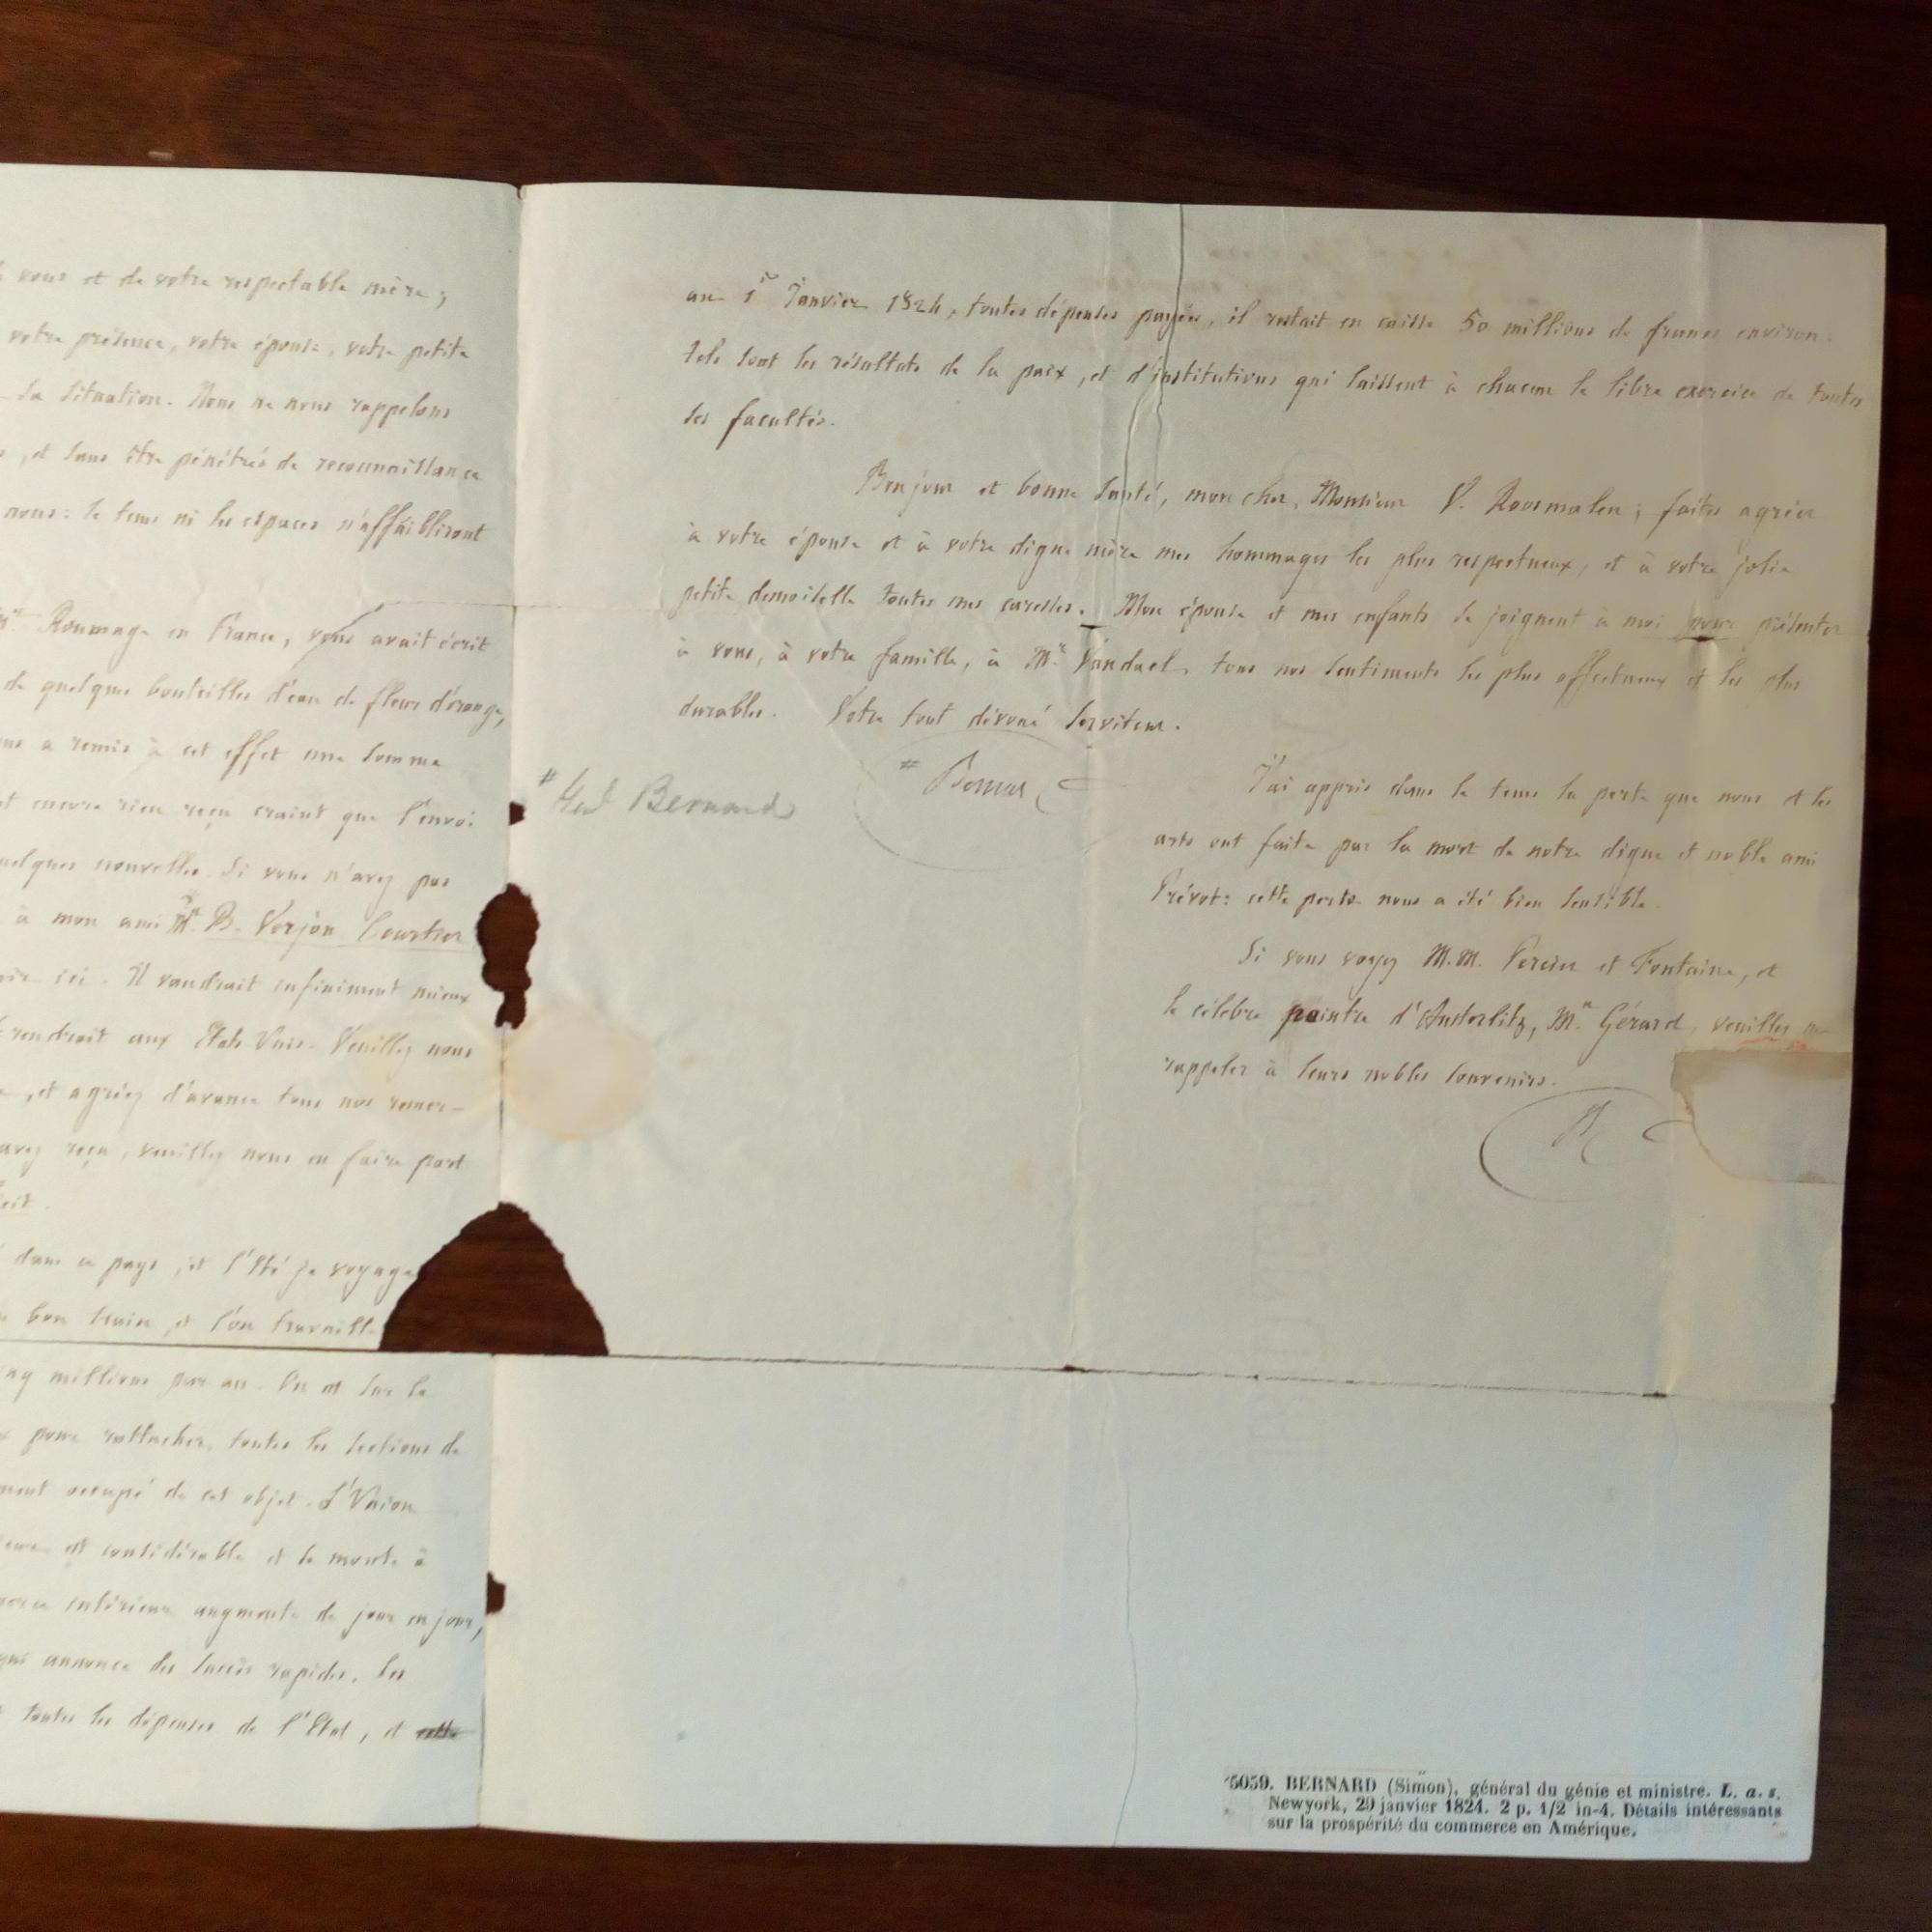 vous et de votre respectable mère ;
votre présence, votre épouse, votre petite
la situation. Nous ne nous rappelons
, et sans être pénétrés de reconnaissance
nous : le tems ni les espaces n'affaibliront
Mr. Roumage en France, vous avait écrit
de quelques bouteilles d'eau de fleurs d'orange,
a remis à cet effet une somme
encore rien reçu craint que l'envoi
quelques nouvelles. Si vous n'avez pas
à mon ami Mr B. Verjon Courtier
ici. Il vaudrait infiniment mieux
rendrait aux Etats Unis. Veuillez nous
, et agréez d'avance tous nos remer-
avez reçu, veuillez nous en faire part
dans ce pays, et l'Eté je voyage
bon train, et l'on travaille
millions par an. On est sur le
pour rattacher toutes les sections de
occupé de cet objet. L'Union
est considérable et se monte à
intérieur augmente de jour en jour,
qui annonce des succès rapides. Les
toutes les dépenses de l'Etat, et
au 1er Janvier 1824, toutes dépenses payées, il restait en caisse 50 millions de francs environ :
tels sont les résultats de la paix, et d'institutions qui laissent à chacun le libre exercice de toutes
ses facultés.
Bonjour et bonne santé, mon cher Monsieur V. Roosmalen ; faites agréer
à votre épouse et à votre digne mère mes hommages les plus respectueux, et à votre jolie
petite demoiselle toutes mes caresses. Mon épouse et mes enfants se joignent à moi pour présenter
à vous, à votre famille, à Mr. Vandael tous nos sentiments les plus affectueux et les plus
durables. Votre tout dévoué serviteur.
# Bernard
# Gal Bernard
J'ai appris dans le tems la perte que nous et les
arts ont faite par la mort de notre digne et noble ami
Prévot : cette perte nous a été bien sensible.
Si vous voyez M.M. Percier et Fontaine, et
le célèbre peintre d'Austerlitz, Mr. Gérard, veuillez me
rappeler à leurs nobles souvenirs.
B
5059. BERNARD (Simon), général du génie et ministre. L. a. s.
Newyork, 29 janvier 1824. 2 p. 1/2 in-4. Détails intéressants
sur la prospérité du commerce en Amérique.